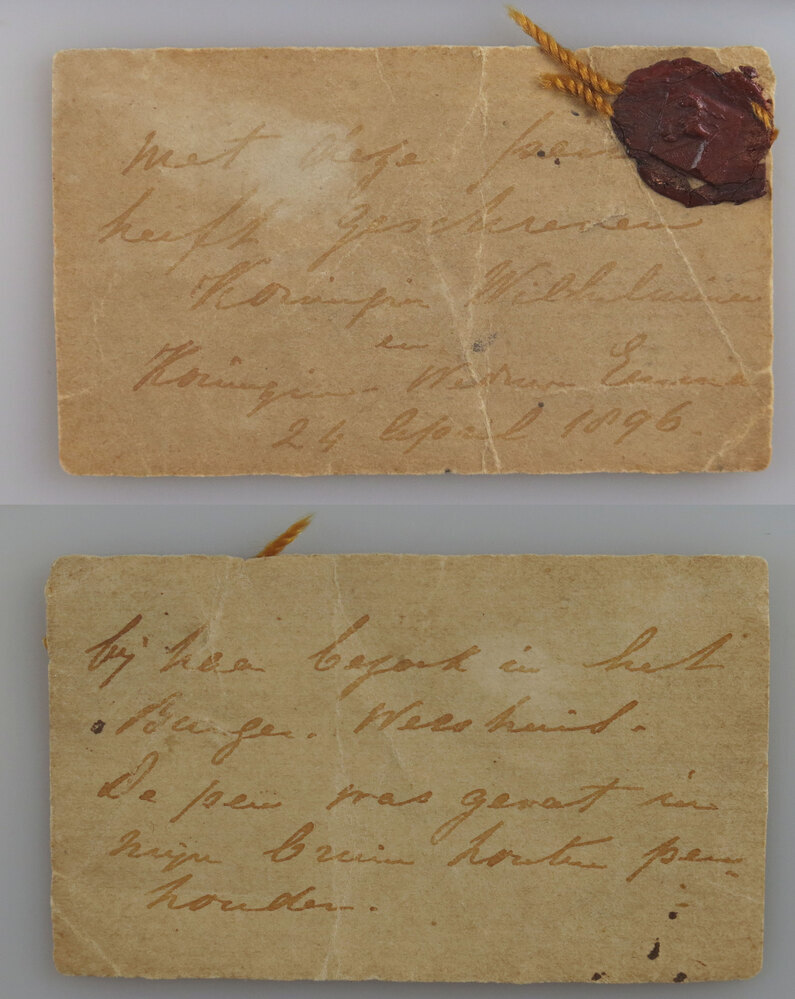 Met deze pen
heeft geschreven
Koningin Wilhelmina
en
Koningin Weduwe Emma
24 April 1896.
bij haar bezoek in het
Burger Weeshuis.
De pen was gevat in
mijn bruin houten pen-
houder.